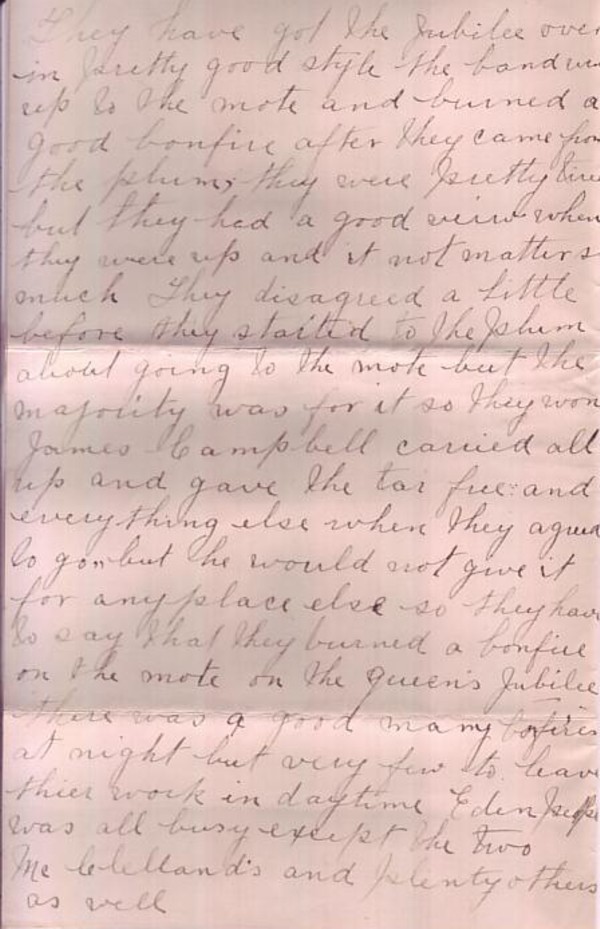 They have got the Jubilee over
in pretty good style the band
up to the mote and burned a
good bonfire after they came from
the plum, they were pretty
but they had a good view when
they were up and it not matters
much They disagreed a little
before they started to the plum
about going to the mote but the
majority was for it so they won
James Campbell carried all
up and gave the tar free and
everything else when they agreed
to go but he would not give it
for any place else so they have
to say that they burned a bonfire
on the mote on the Queens Jubilee
there was a good many bofires
at night but very few to leave
thier work in daytime Eden people
was all busy except the two
Mc Clelland's and plenty others
as well